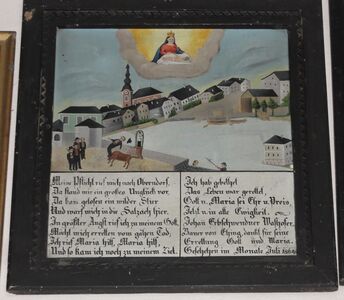 Meine Pflicht rief mich nach Oberndorf,
Da stand mir ein großes Unglück vor,
Da kam gelofen ein wilder Stier
Und warf mich in die Salzach hier.
In größter Angst rief ich zu meinem Gott
Mich erretten vom gähen Tod;
Ich rief Maria hilf, Maria hilf,
Und so kam ich noch zu meinem Ziel.
Ich hab gebethet
Das Leben war gerettet,
Gott u. Maria sei Ehr u. Preis,
Jetzt u. in alle Ewigkeit.
Johann Gebschneider
Bauer von Eching, dankt für seine
Errettung Gott und Maria.
Geschehen im Monate Juli